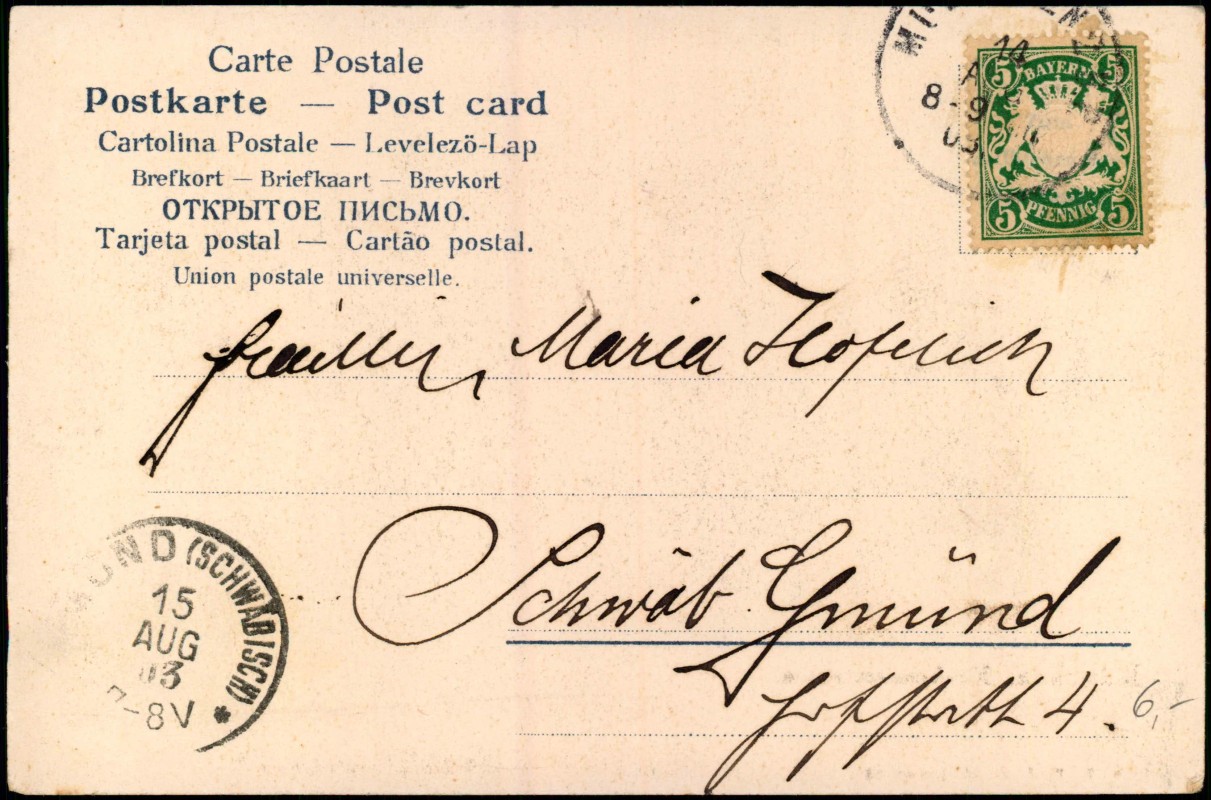 Carte Postale
Postkarte — Post card
Cartolina Postale — Levelezö-Lap
Brefkort — Briefkaart — Brevkort
ОТКРЫТОЕ ПИСЬМО.
Tarjeta postal — Cartão postal.
Union postale universelle.
14
8-9
03
5 5
BAYERN
5 PFENNIG 5
Maria
Schwäb. Gmünd
4.
6,-
UND (SCHWÄBISCH)
15
AUG
03
-8V
*